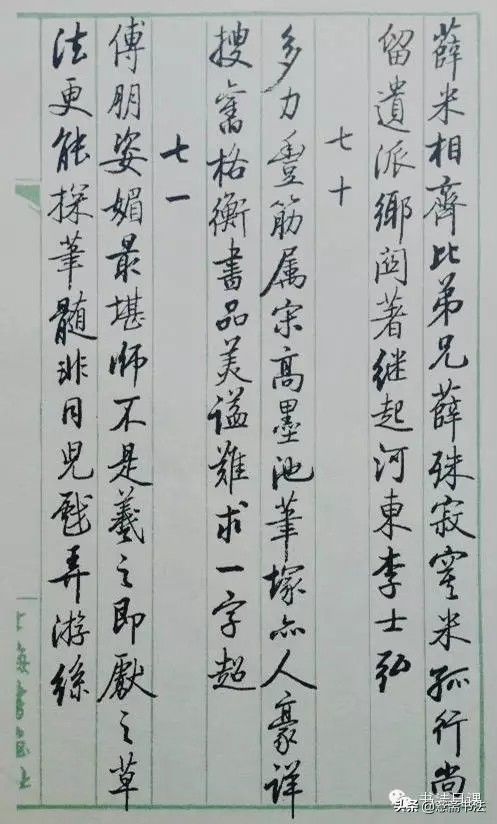 薛米相齊比弟兄薛殊寂寞米孤行尚
留遺派鄉閭著继起河東李士弘
七十
多力豐筋属宋高墨池筆塚亦人豪详
搜舊格衡書品美谥難求一字超
七一
傅朋姿媚最堪師不是羲之即獻之草
法更能探筆髓非同兒戲弄游絲
书法日课